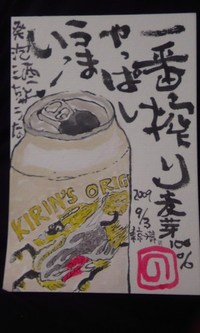 一番搾り
麦芽100%
やっぱし
うまい
発泡酒
2009
9/3
KIRIN'S ORIG
の